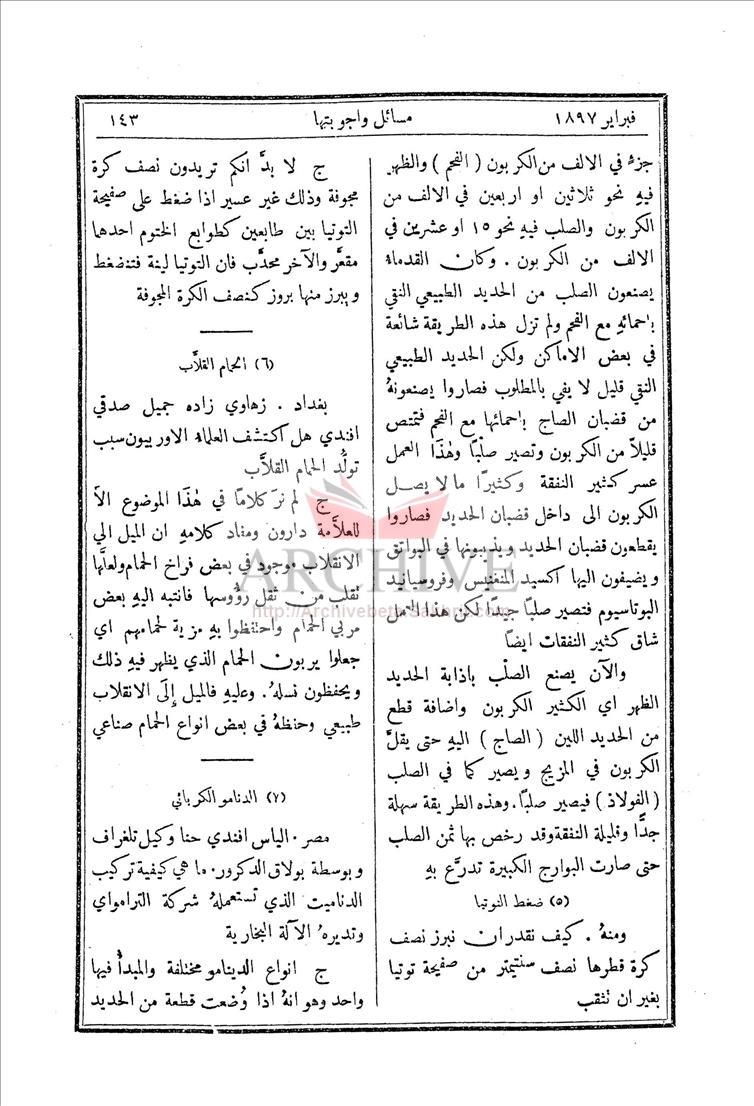 فبراير ١٨٩٧
مسائل واجوبتها
١٤٣
جزءٌ في الالف من الكربون ( الفحم ) والظهر
فيهِ نحو ثلاثين او اربعين في الالف من
الكربون والصلب فيهِ نحو ١٥ او عشرين في
الالف من الكربون . وكان القدماءُ
يصنعون الصلب من الحديد الطبيعي النقي
باحمائهِ مع الفحم ولم تزل هذه الطريقة شائعة
في بعض الاماكن ولكن الحديد الطبيعي
النقي قليل لا يفي بالمطلوب فصاروا يصنعونهُ
من قضبان الصاج باحمائها مع الفحم فتمتص
قليلاً من الكربون وتصير صلبًا وهٰذا العمل
عسر كثير النفقة وكثيرًا ما لا يصل
الكربون الى داخل قضبان الحديد فصاروا
يقطعون قضبان الحديد ويذيبونها في البواتق
ويضيفون اليها اكسيد المنغنيس وفروسيانيد
البوتاسيوم فتصير صلبًا جيدًا لكن هذا العمل
شاق كثير النفقات ايضًا
والآن يصنع الصلْب باذابة الحديد
الظهر اي الكثير الكربون واضافة قطع
من الحديد اللين ( الصاج ) اليهِ حتى يقلَّ
الكربون في المزيج ويصير كما في الصلب
( الفولاذ ) فيصير صلبًا . وهذه الطريقة سهلة
جدًّا وقليلة النفقة وقد رخص بها ثمن الصلب
حتى صارت البوارج الكبيرة تدرَّع بهِ
(٥) ضغط التوتيا
ومنهُ . كيف نقدر ان نبرز نصف
كرة قطرها نصف سنتيمتر من صفيحة توتيا
بغير ان تثقب
ج لا بدَّ انكم تريدون نصف كرة
مجوفة وذلك غير عسير اذا ضغط على صفيحة
التوتيا بين طابعين كطوابع الختوم احدهما
مقعَّر والآخر محدَّب فان التوتيا لينة فتنضغط
ويبرز منها بروز كنصف الكرة المجوفة
(٦) الحمام القلاَّب
بغداد . زهاوي زاده جميل صدقي
افندي هل اكتشف العلماءُ الاوربيون سبب
تولُّد الحمام القلاَّب
ج لم نرَ كلامًا في هٰذا الموضوع الاَّ
للعلاَّمة دارون ومفاد كلامهِ ان الميل الى
الانقلاب موجود في بعض فراخ الحمام ولعلَّها
تقلب من ثقل رؤُوسها فانتبه اليهِ بعض
مربي الحمام واحتفظوا بهِ مزية لحمامهم اي
جعلوا يربون الحمام الذي يظهر فيهِ ذلك
ويحفظون نسلهُ . وعليهِ فالميل إِلى الانقلاب
طبيعي وحفظهُ في بعض انواع الحمام صناعي
(٧) الدنامو الكربائي
مصر . الياس افندي حنا وكيل تلغراف
وبوسطة بولاق الدكرور . ما هي كيفية تركيب
الدناميت الذي تستعملهُ شركة التراموای
وتديرهُ الآلة البخارية
ج انواع الدينامو مختلفة والمبدأُ فيها
واحد وهو انهُ اذا وُضعت قطعة من الحديد
ARCHIVE
http://Archivebeta.Sakhrit.com